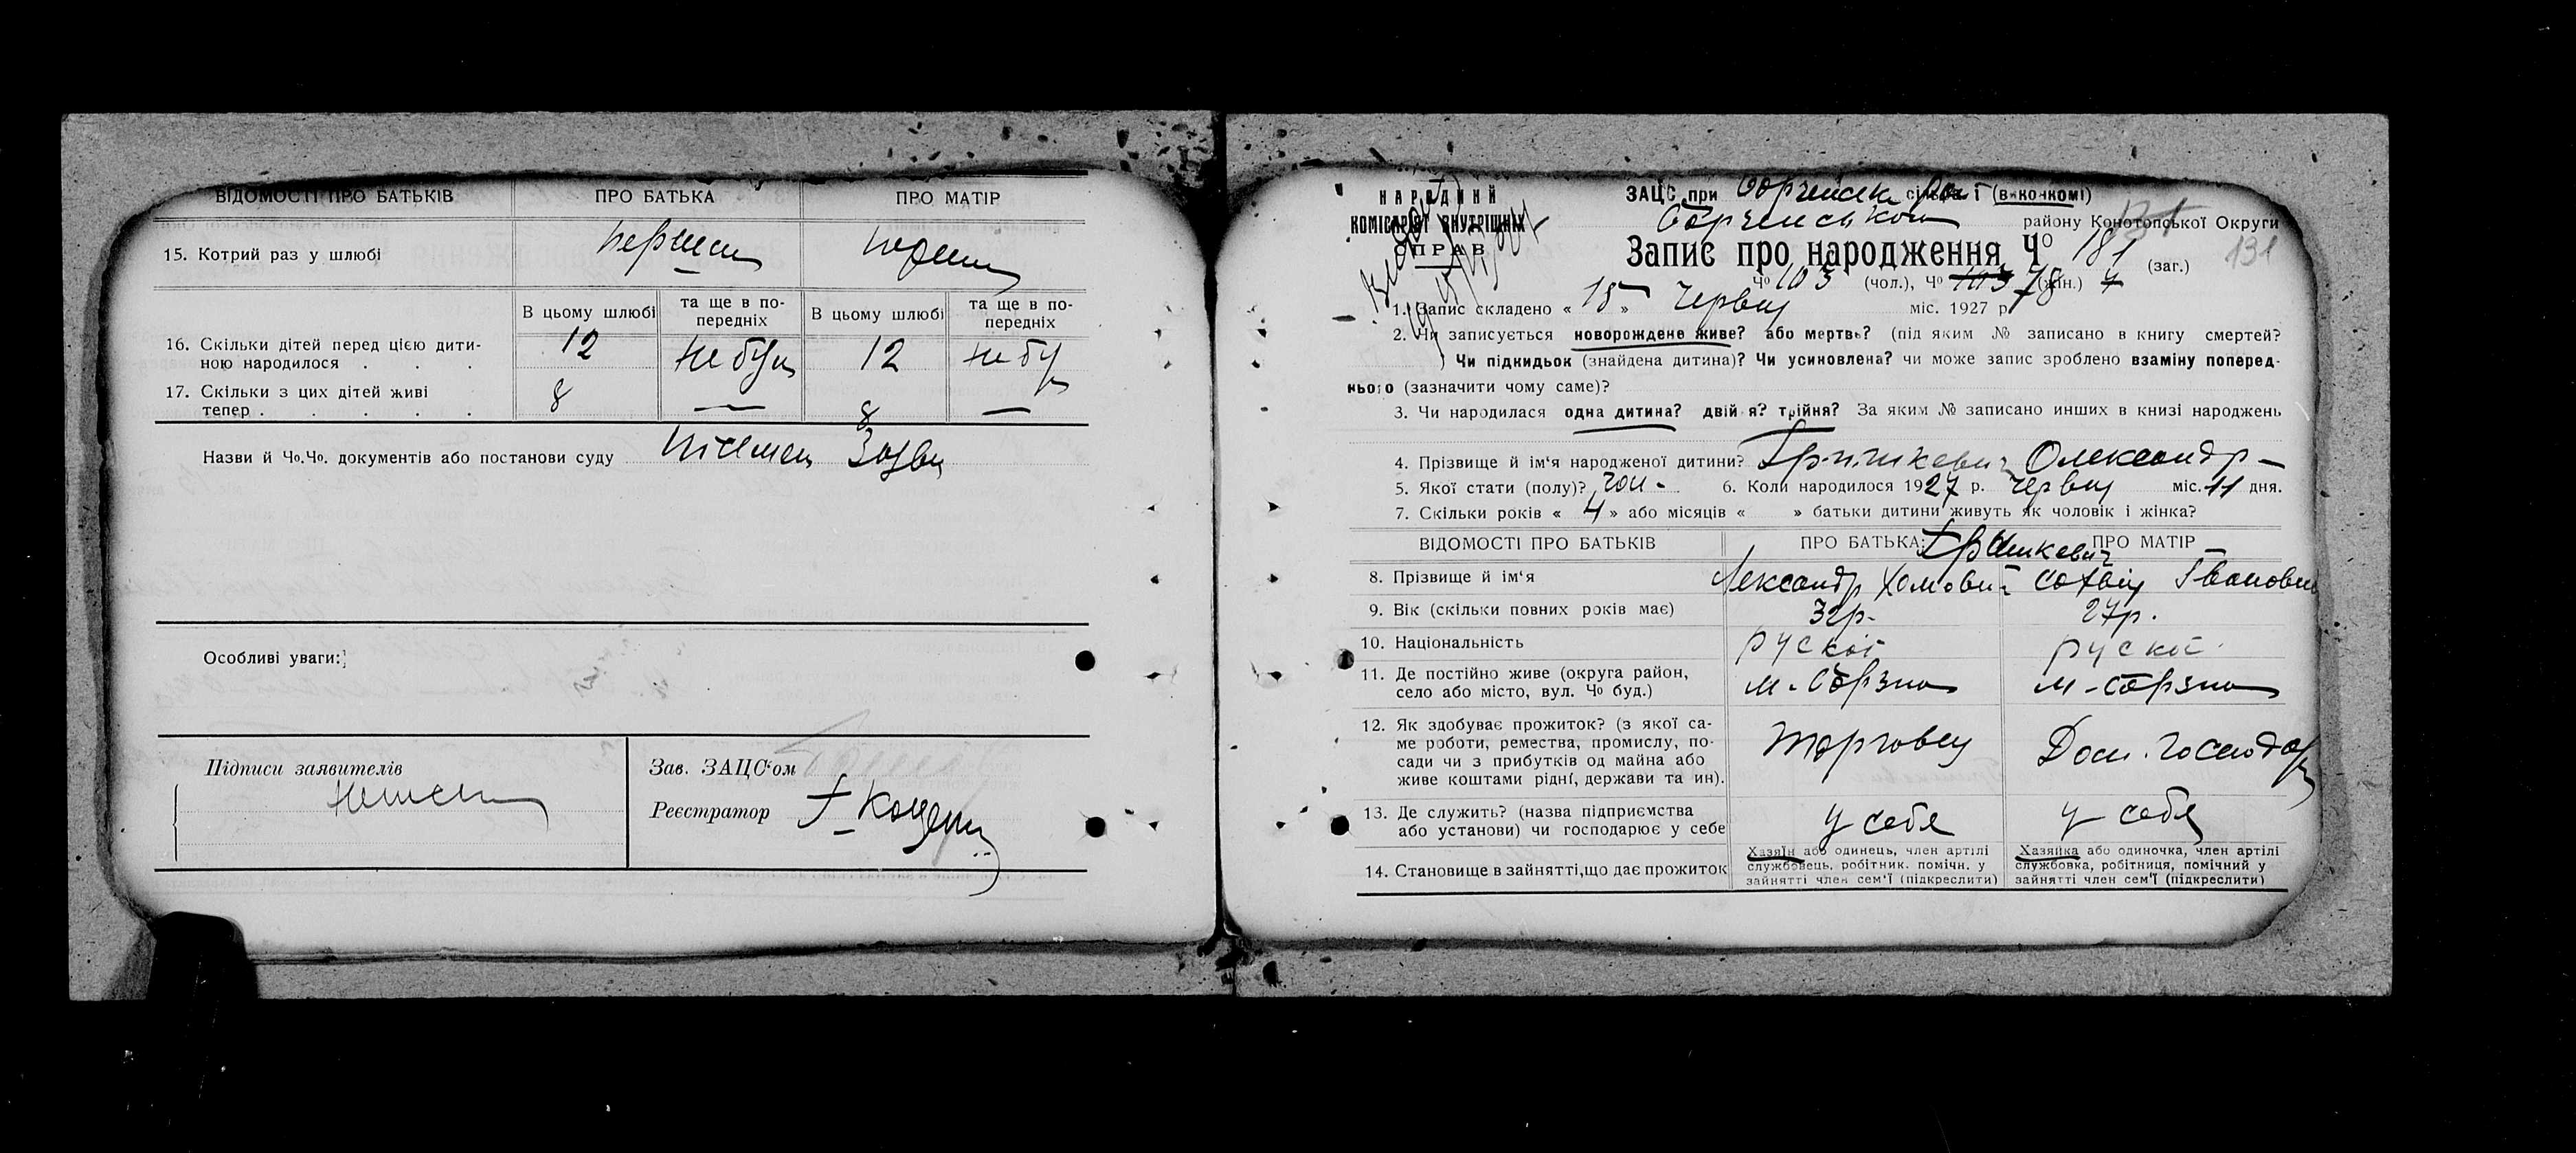 ВІДОМОСТІ ПРО БАТЬКІВ ПРО БАТЬКА ПРО МАТІР
15. Котрий раз у шлюбі
В цьому шлюбі та ще в по-передніх В цьому шлюбі та ще в по-передніх
16. Скільки дітей перед цією дити-
ною народилося . . . 12 Не були 12 не бу
17. Скільки з цих дітей живі
тепер . . . . . 8 — 8 —
Назви й Чо.Чо. документів або постанови суду
Особливі уваги:
Підписи заявителів
Зав. ЗАЦС'ом
Реєстратор
НАРОДНИЙ
КОМІСАРІЯТ ВНУТРІШНІХ
СПРАВ
ЗАЦС при (виконкомі)
району Конотопської Округи
Запис про народження Чо 181 (заг.)
131
Чо 103 (чол.), Чо 103 78 (жін.)
1. Запис складено « 15 » червня міс. 1927 р.
2. Чи записується новорождене живе? або мертве? (під яким № записано в книгу смертей?
) Чи підкидьок (знайдена дитина)? Чи усиновлена? чи може запис зроблено взаміну поперед-
нього (зазначити чому саме)?
3. Чи народилася одна дитина? двійня? трійня? За яким № записано инших в книзі народжень
4. Прізвище й ім'я народженої дитини? Гришкевич Олександр —
5. Якої стати (полу)? чол. 6. Коли народилося 1927 р. червня міс. 11 дня.
7. Скільки років « 4 » або місяців « » батьки дитини живуть як чоловік і жінка?
ВІДОМОСТІ ПРО БАТЬКІВ ПРО БАТЬКА: ПРО МАТІР
Гришкевич
8. Прізвище й ім'я Лександр Хомович Івановн
9. Вік (скільки повних років має) 32р. 27р.
10. Національність рускої рускої
11. Де постійно живе (округа район,
село або місто, вул. Чо буд.) м. Борзна м. Борзна
12. Як здобуває прожиток? (з якої са-
ме роботи, ремества, промислу, по-
сади чи з прибутків од майна або
живе коштами рідні, держави та ин). торговец Дом. господар
13. Де служить? (назва підприємства
або установи) чи господарює у себе у себя у себя
14. Становище в зайнятті, що дає прожиток
Хазяїн або одинець, член артілі
службовець, робітник. помічн. у
зайнятті член сем'ї (підкреслити)
Хазяйка або одиночка, член артілі
службовка, робітниця, помічний у
зайнятті член сем'ї (підкреслити)